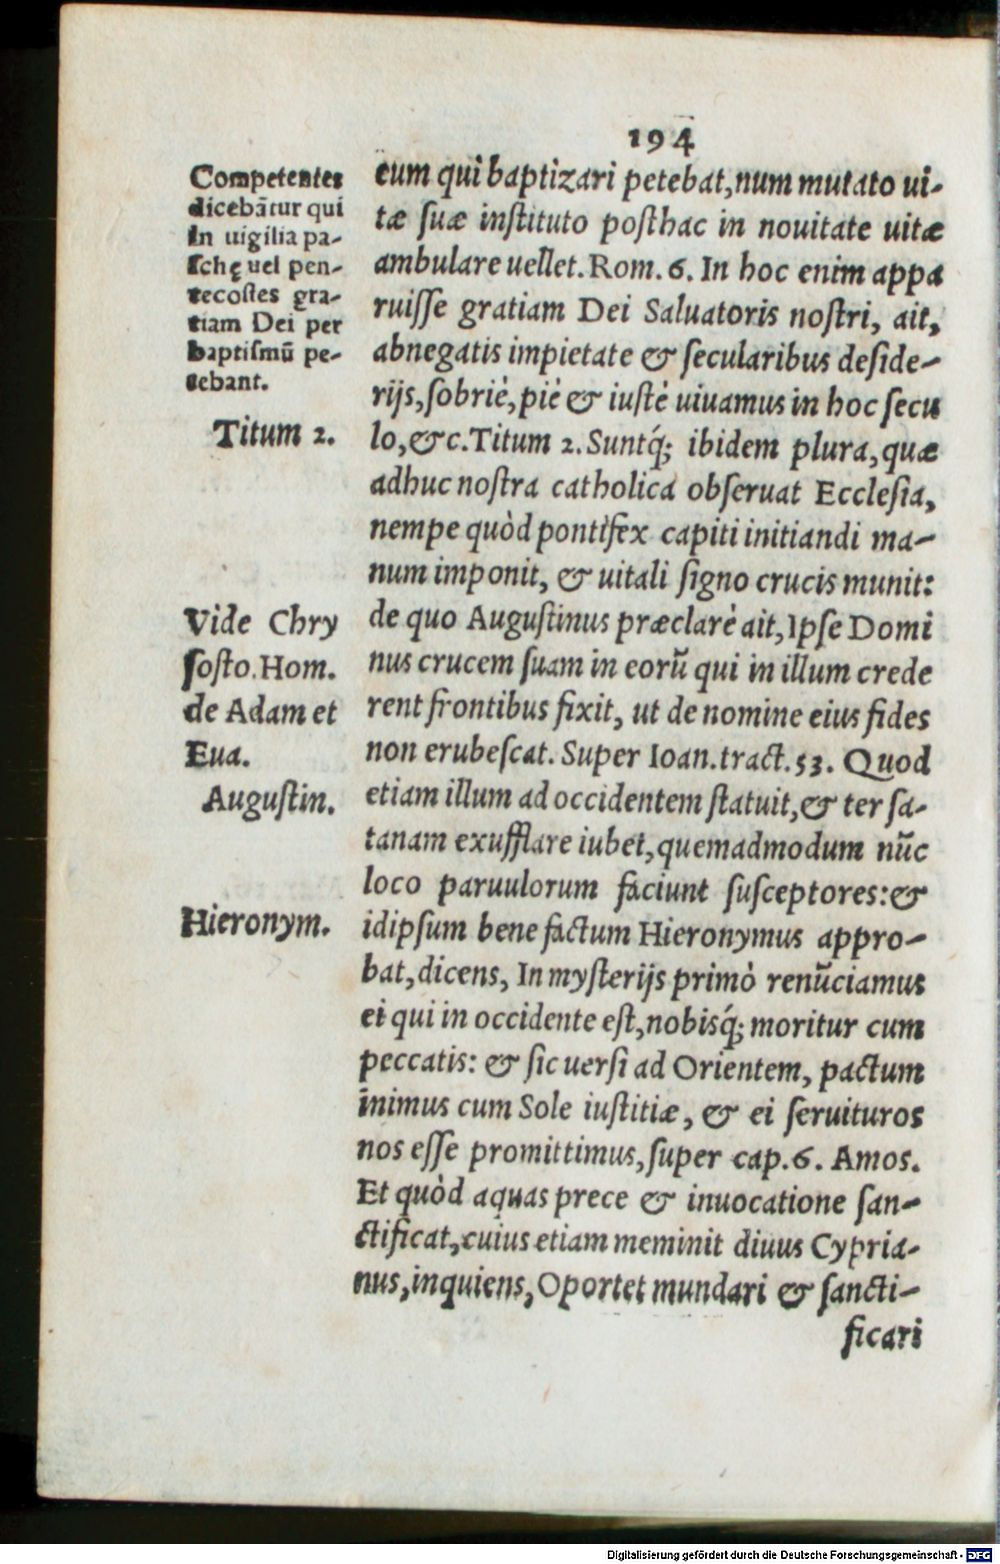 194
Competentes
dicebãtur qui
in uigilia pa-
ſchę uel pen-
tecoſtes gra-
tiam Dei per
baptiſmũ pe-
tebant.
Titum 2.
Vide Chry
ſoſto. Hom.
de Adam et
Eua.
Auguſtin.
Hieronym.
eum qui baptizari petebat, num mutato ui-
tæ ſuæ inſtituto poſthac in nouitate uitæ
ambulare uellet. Rom. 6. In hoc enim appa
ruiſſe gratiam Dei Saluatoris noſtri, ait,
abnegatis impietate & ſecularibus deſide-
rijs, ſobriè, piè & iuſtè uiuamus in hoc ſecu
lo, &c. Titum 2. Suntq́; ibidem plura, quæ
adhuc noſtra catholica obſeruat Eccleſia,
nempe quòd pontifex capiti initiandi ma-
num imponit, & uitali ſigno crucis munit:
de quo Auguſtinus præclarè ait, Ipſe Domi
nus crucem ſuam in eorũ qui in illum crede
rent frontibus fixit, ut de nomine eius fides
non erubeſcat. Super Ioan. tract. 53. Quod
etiam illum ad occidentem ſtatuit, & ter ſa-
tanam exufflare iubet, quemadmodum nũc
loco paruulorum faciunt ſuſceptores: &
idipſum bene factum Hieronymus appro-
bat, dicens, In myſterijs primò renũciamus
ei qui in occidente eſt, nobisq́; moritur cum
peccatis: & ſic uerſi ad Orientem, pactum
inimus cum Sole iuſtitiæ, & ei ſeruituros
nos eſſe promittimus, ſuper cap. 6. Amos.
Et quòd aquas prece & inuocatione ſan-
ctificat, cuius etiam meminit diuus Cypria-
nus, inquiens, Oportet mundari & ſancti-
ficari
Digitalisierung gefördert durch die Deutsche Forschungsgemeinschaft - DFG